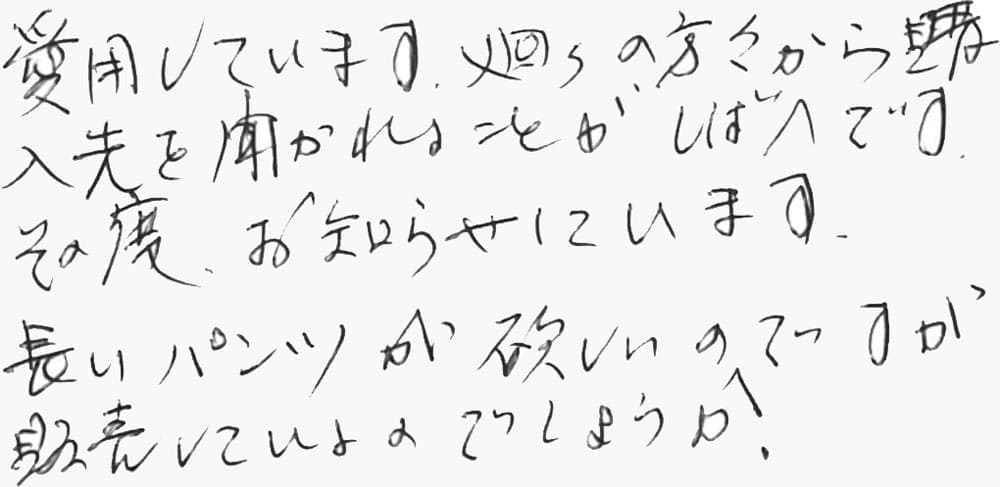 愛用しています。廻りの方々から購
入先を聞かれることがしば〱です。
その度、お知らせしています。
長いパンツが欲しいのですが
販売しているのでしょうか?